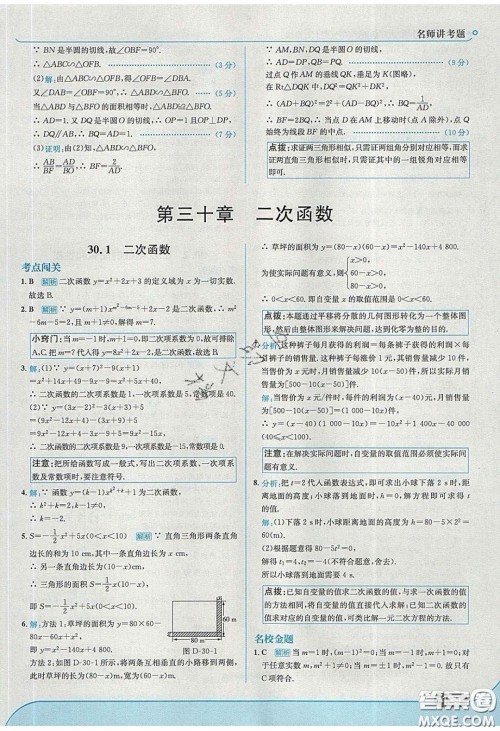 名师讲考题
∵ BN是半圆的切线,故∠OBF=90°.
∴ △ABC∽△OFB. (3分)
(2)解:由△ACB∽△OBF,得∠OFB=∠DBA,
∠DAB=∠OBF=90°,
∴ △ABD∽△BFO. (5分)
当△ABD与△BFO的面积相等时,△ABD≌△BFO.
∴ AD=1.又DP=DA=1,∴ OP=1且OP⊥DP.
∴ DQ∥AB,∴ BQ=AD=1. (7分)
(3)证明:由(2)知,△ABD∽△BFO,
∴ AB/BF=AD/BO,∴ BF=2/AD.
∵ AM,BN,DQ是半圆O的切线,
∴ AD=DP,QB=PQ.
过点Q作AM的垂线QK,垂足为K(图略),
在Rt△DQK中,DQ²=QK²+DK²,
∴ (AD+BQ)²=2²+(AD-BQ)²,∴ BQ=1/AD,
∴ BF=2BQ.∴ 当点D在AM上移动时(点A除外),点Q
始终为线段BF的中点. (10分)
点拨:求证两三角形相似,只需证两组角分别对应相等,而求
证两直角三角形相似时,只需证其中的一组锐角对应相等
即可.
第三十章 二次函数
30.1 二次函数
考点闯关
1. B 解析 二次函数y=x²+2x+3的定义域为x为一切实数.
故选B.
∴ m²
-6m-5=2,且m+1≠0,解得m=7.
小窍门:当m=-1时,m+1=0,即二次项系数为0,故可排除
A,C.把m=7代入得y=8x²+2x-2,是二次函数.故选B.
3. 解:(1)∵ y=(x+7)²-9(x+1)
=x²+14x+49-9x-9=x²+5x+40,
∴ 二次函数的二次项系数是1,一次项系数是5,常数项是40.
(2)∵ y=(3x-2)²-3(x+3)+5
=9x²-12x+4-3x-9+5
=9x²-15x,
∴ 二次函数的二次项系数是9,一次项系数是-15,常数项是0.
注意:把所给函数写成一般式,写出二次项系数、一次项系
数及常数项时,要注意符号.
∴ k=-2.
5. S=-1/2x²+5x(0<x<10) 解析 ∵ 直角三角形两条直角
边长的和为10 cm,其中一条直角边长为x cm,
∴ 另一条直角边长为(10-x)cm.
∴ 三角形的面积S=1/2x(10-x),
即S=-1/2x²+5x(0<x<10).
6. 解:方法1:草坪的面积为y=80×60-
80x-60x+x²,
即y=x²-140x+4 800.
60 m
80 m
图D-30-1
方法2:如图D-30-1,将两条互相垂直的小路移到两侧,
此时草坪的长为(80-x)m,宽为(60-x)m.
∴ 草坪的面积为y=(80-x)(60-x)=x²-140x+4 800.
x>0,
为使实际问题有意义,则 80-x>0,
60-x>0,
∴ 0<x<60.即自变量x的取值范围是0<x<60.
点拨:本题通过平移将分散的几何图形转化为一个整体图
形,然后由整体图形来解决问题,达到化零为整的目的.
7. 分析:这种裤子每月获得的利润=每条裤子获得的利润×每
月裤子的销售量.这种裤子每条涨价1元,其销售量减少10
件,当售价为x元时,月销售量减少10(x-50)件,月销售量
为[500-10(x-50)].
解:当售价为x元/件时,每件的利润为(x-40)元,月销售量
为[500-10(x-50)]=(1 000-10x)件,
∴ y=(x-40)(1 000-10x)=-10x²+1 400x-40 000
(40≤x<100).
注意:在解决实际问题时,自变量的取值范围必须使实际问
题有意义.
8. 分析:把t=2代入函数表达式,即可求出小球下落2 s时,距
离地面的高度;小球落到地面时,h=0,解方程即可求得t
的值.
解:(1)下落2 s时,小球距离地面的高度为h=80-5×2²=
60(m).
(2)根据题意得80-5t²=0.
解得t₁=4,t₂=-4(不符合题意,舍去).
所以小球落到地面需要4 s.
点拨:已知自变量的值求二次函数的值,与求一次函数的值
的方法相同,将自变量的值直接代入求解;已知二次函数值
求对应的自变量的值,可类比解一元二次方程的方法.
名校金题
1. C 解析 当m=1时,(m-1)²=0;当m=-1时,m+1=0;对
于任意实数m,m²+1≠0;当m=±1时,m²-1=0.故只有
C项符合.
MXQE.COM